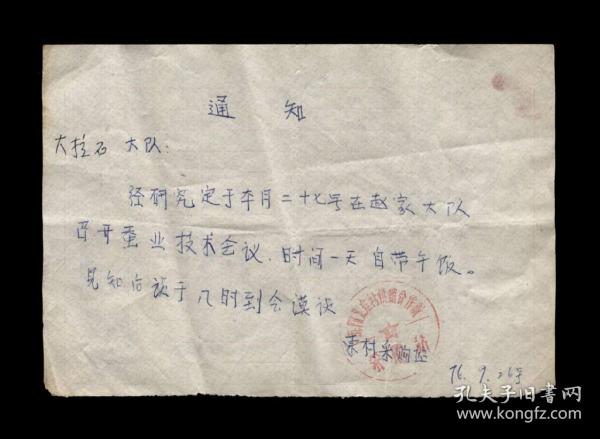 通 知
大拉石 大队：
经研究定于本月二十七号在赵家大队
召开蚕业技术会议，时间一天自带午饭。
见知后该于八时到会
东村采购站
76. 9. 26号
孔夫子旧书网
www.kongfz.com